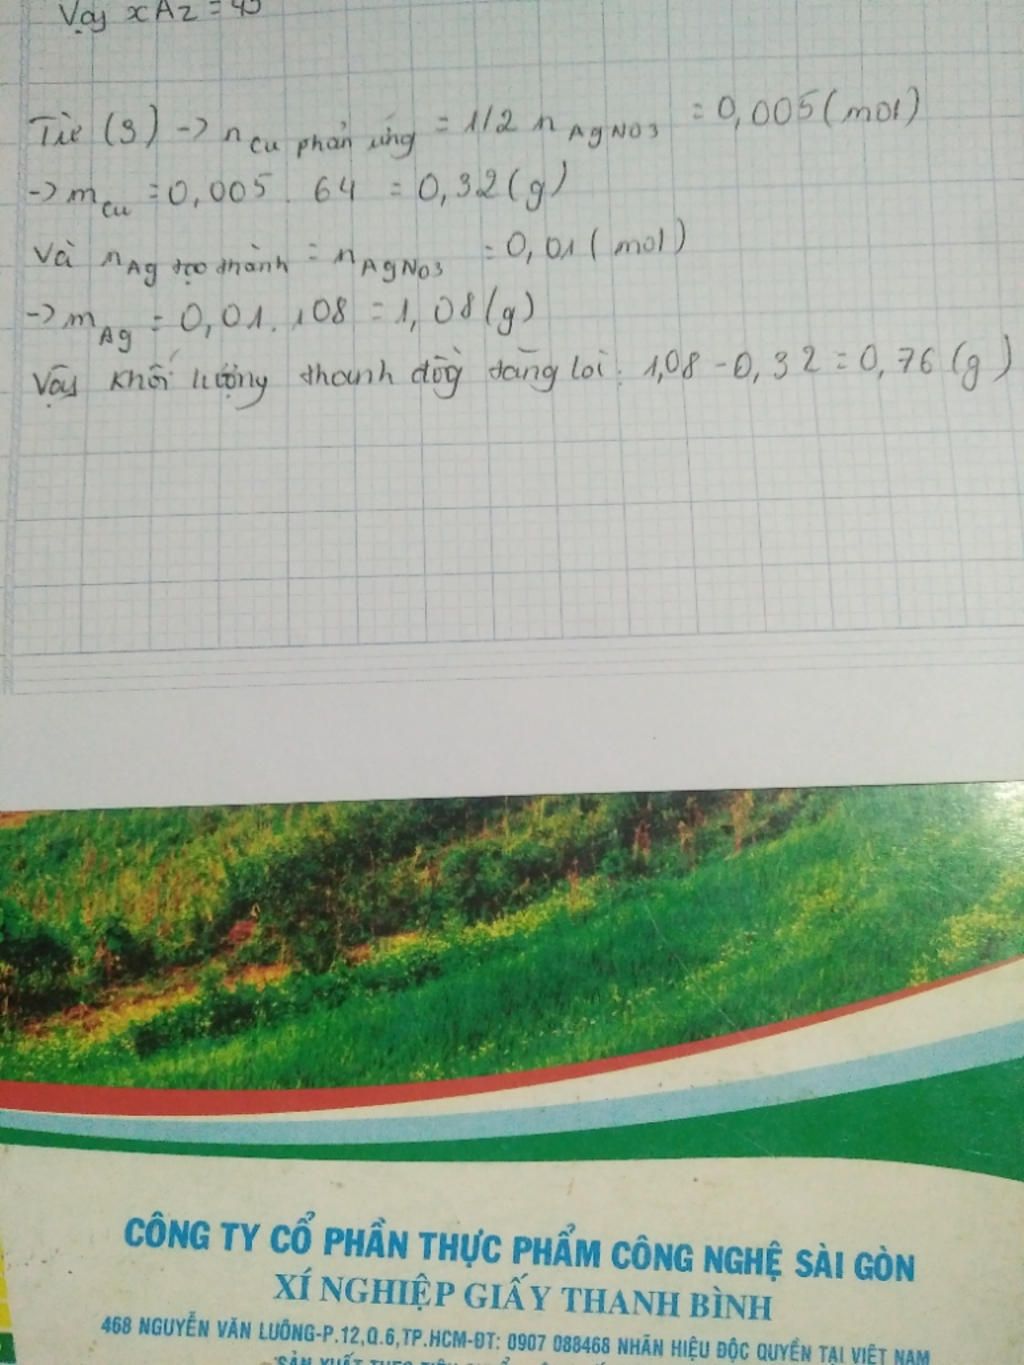 Vậy xA2 = 45
Từ (3) -> n Cu phản ứng = 1/2 n AgNO3 = 0,005 (mol)
-> m Cu = 0,005 . 64 = 0,32 (g)
Và n Ag tạo thành = n AgNO3 = 0,01 (mol)
-> m Ag = 0,01 . 108 = 1,08 (g)
Vậy khối lượng thanh đồg tăng lài : 1,08 - 0,32 = 0,76 (g)
CÔNG TY CỔ PHẦN THỰC PHẨM CÔNG NGHỆ SÀI GÒN
XÍ NGHIỆP GIẤY THANH BÌNH
468 NGUYỄN VĂN LUÔNG-P.12,Q.6,TP.HCM-ĐT: 0907 088468 NHÃN HIỆU ĐỘC QUYỀN TẠI VIỆT NAM
SẢN XUẤT THEO TIÊU